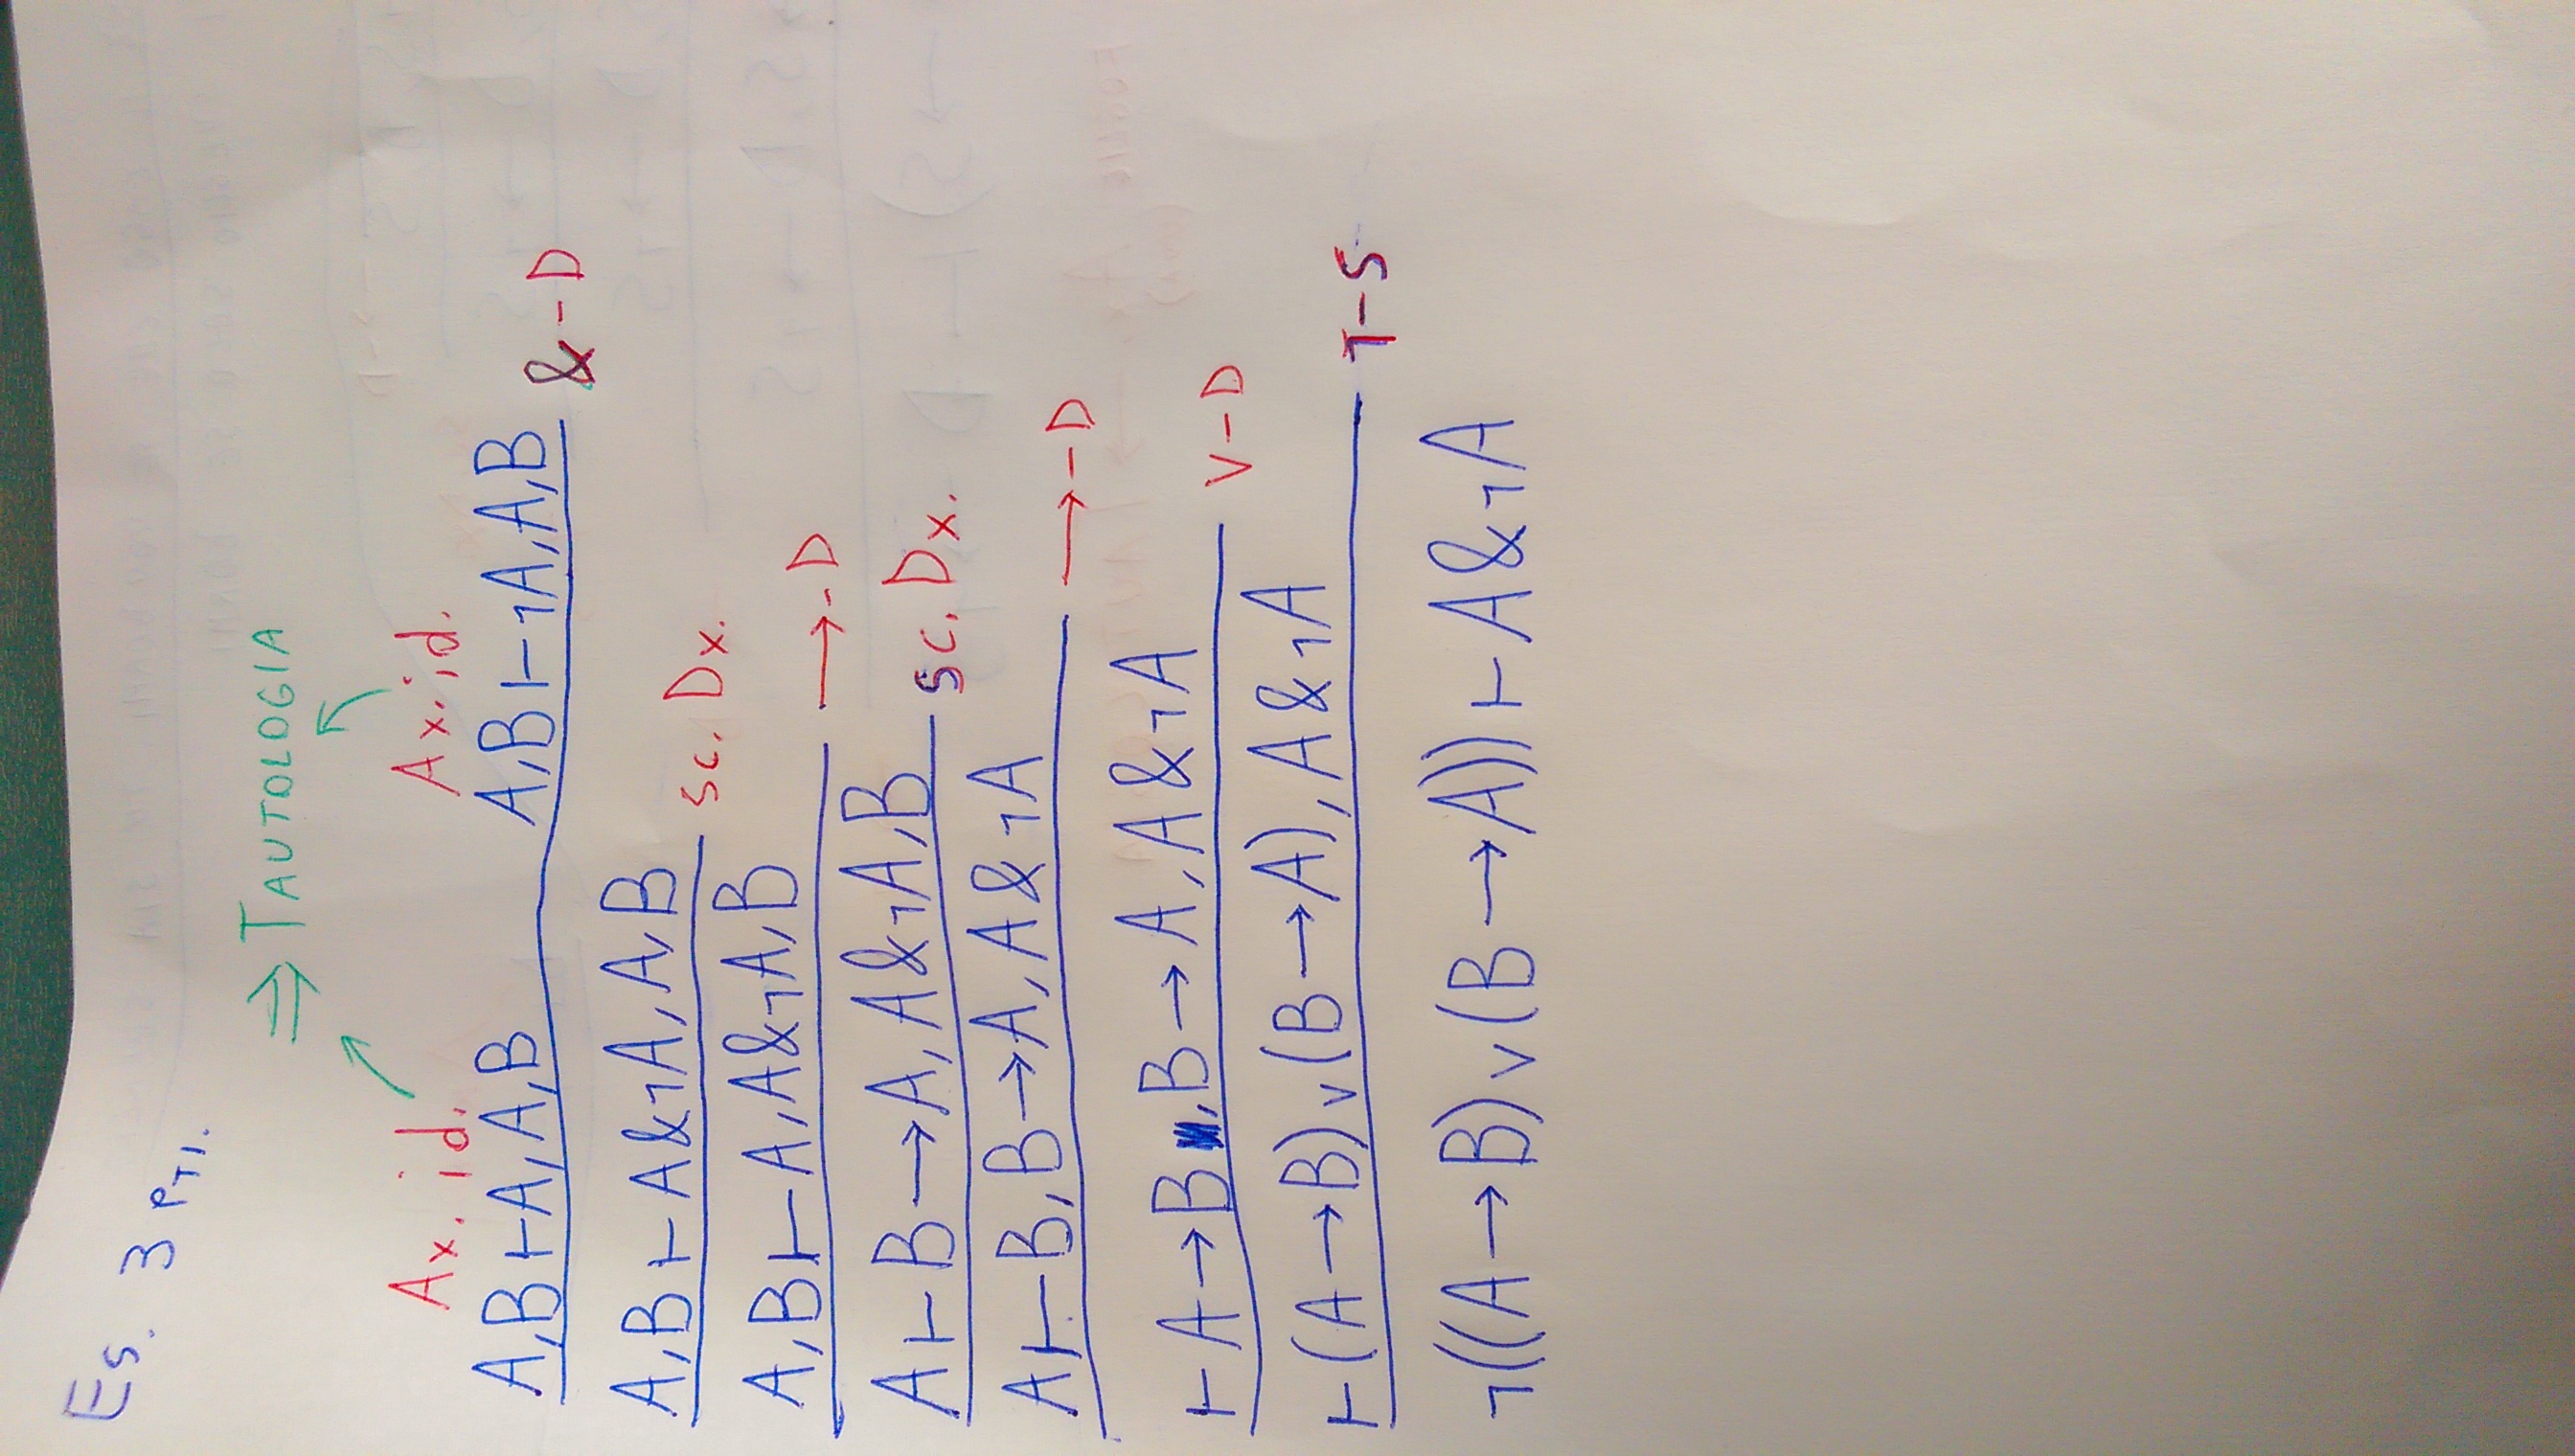 Es. 3 PTI.
⇒ TAUTOLOGIA
Ax. id. Ax. id.
A,B ⊢ A, A, B A,B ⊢ ¬A, A, B &-D
A,B ⊢ A&¬A, A, B sc. Dx.
A,B ⊢ A, A&¬A, B →-D
A ⊢ B→A, A&¬A, B sc. Dx.
A ⊢ B, B→A, A&¬A →-D
⊢ A→B, B→A, A&¬A ∨-D
⊢ (A→B)∨(B→A), A&¬A ¬-S
¬((A→B)∨(B→A)) ⊢ A&¬A